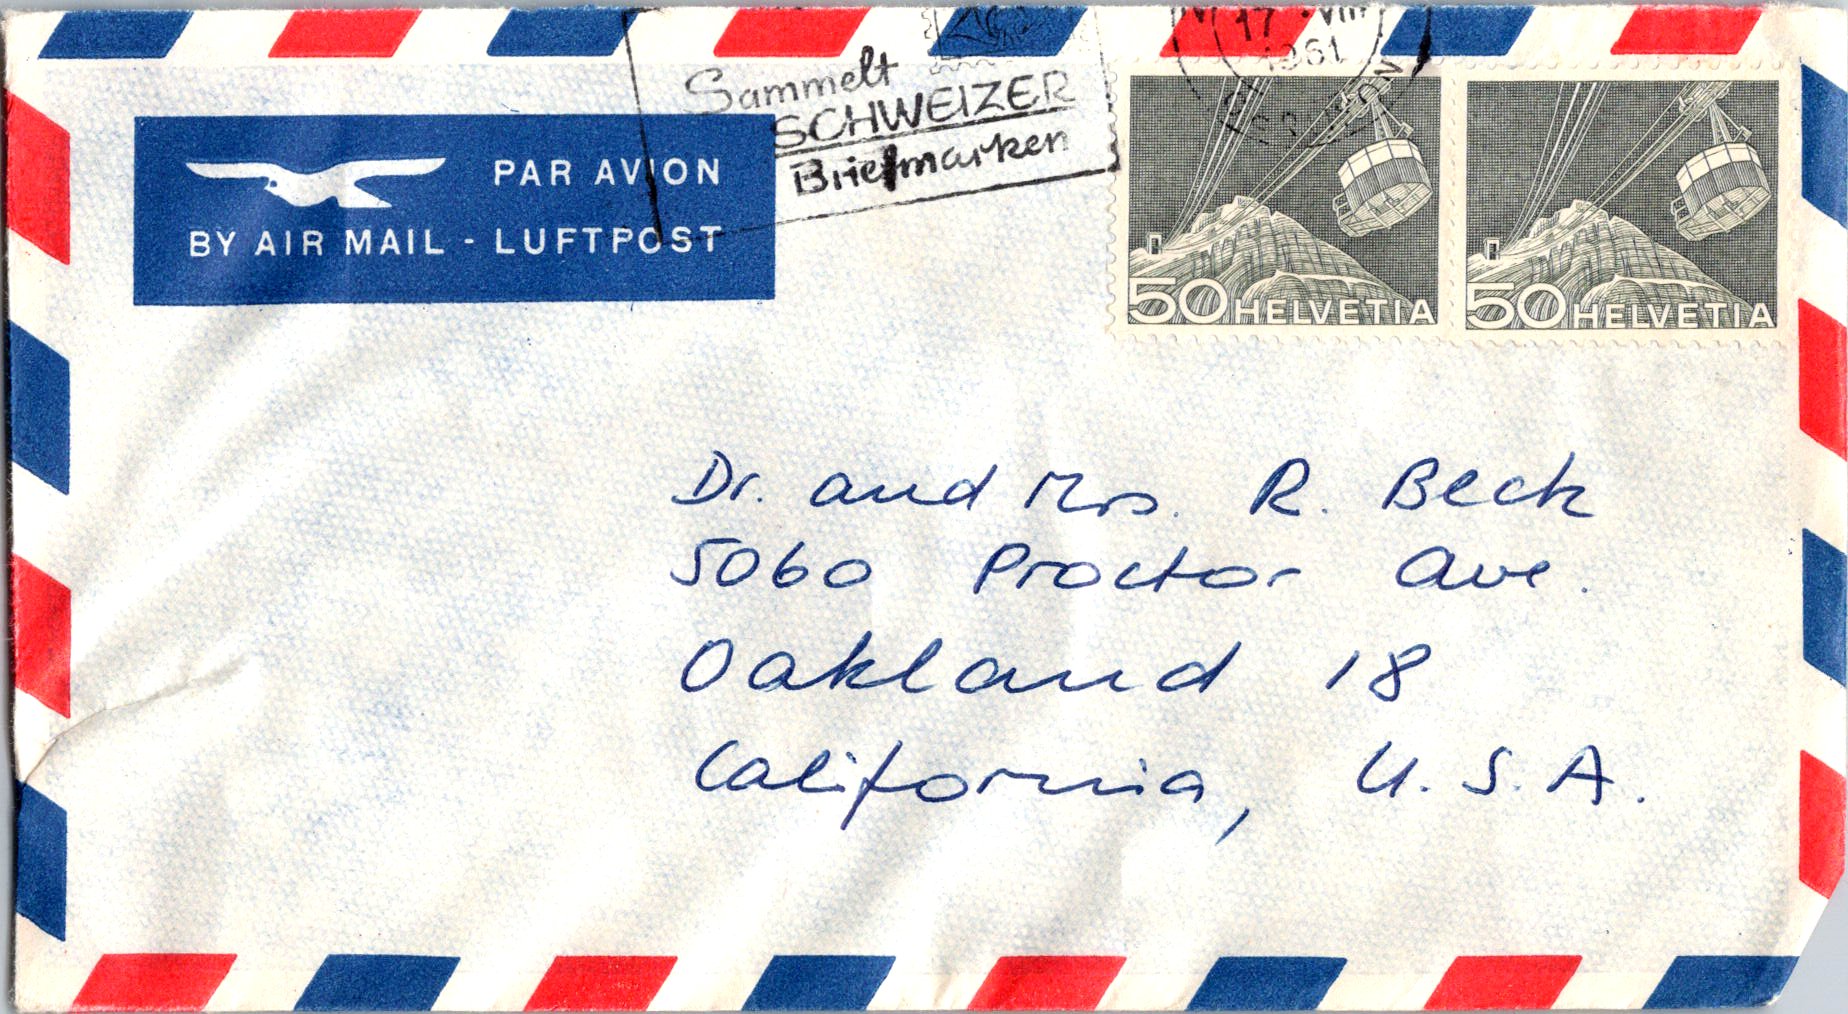 Sammelt
SCHWEIZER
Briefmarken
17 VIII
1961
PAR AVION
BY AIR MAIL - LUFTPOST
50 HELVETIA
50 HELVETIA
Dr. and Mrs. R. Beck
5060 Proctor Ave.
Oakland 18
California, U.S.A.